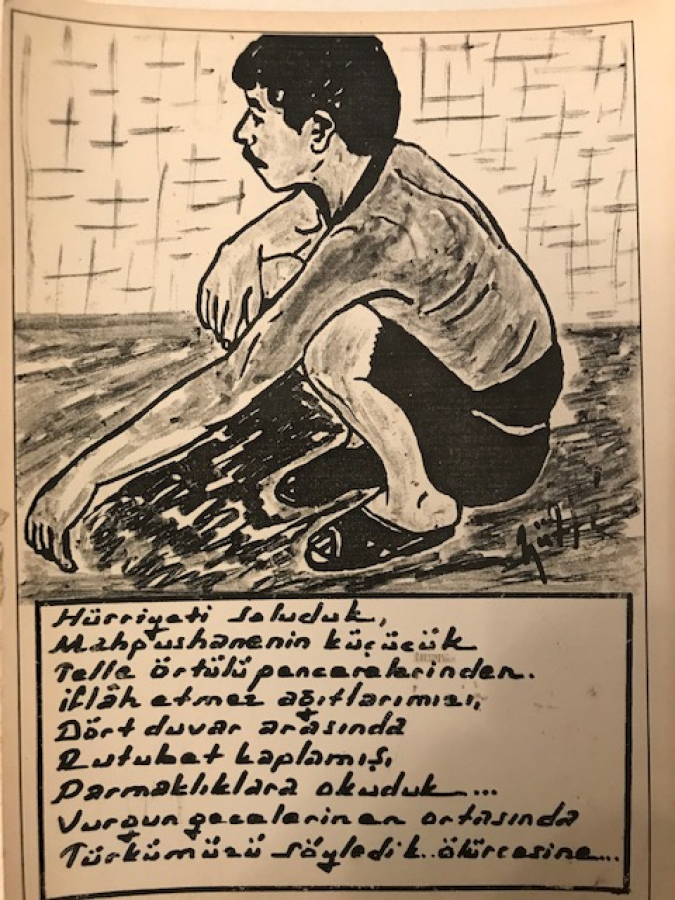 Hürriyeti soluduk,
Mahpushanenin küçücük
Telle örtülü pencerelerinden.
iflâh etmez ağıtlarımızı,
Dört duvar arasında
Rutubet kaplamış,
Parmaklıklara okuduk...
Vurgun gecelerinen ortasında
Türkümüzü söyledik..ölürcesine...